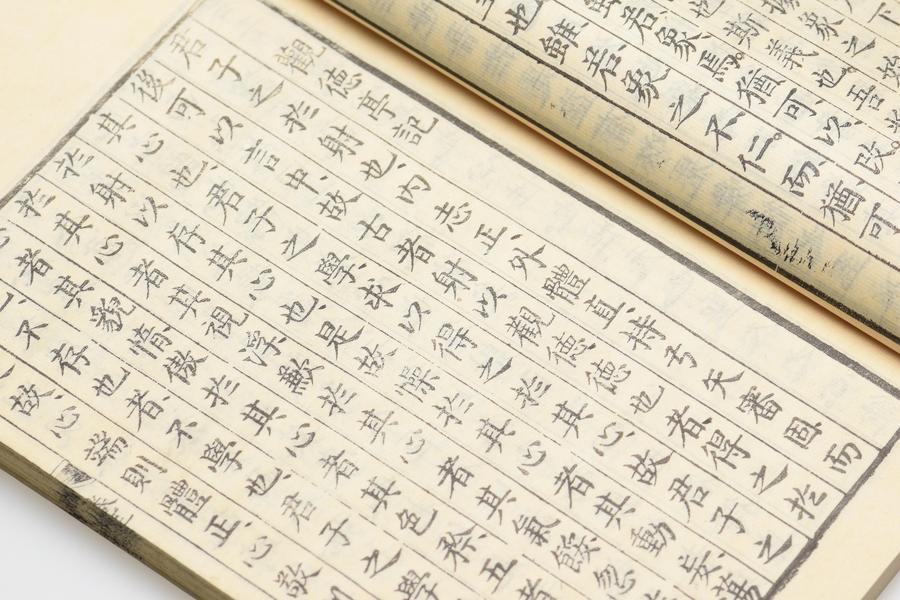 下
據象之始
也斯義也吾
雖若象焉。猶可以改。
也、雖若象之不仁、而猶可
觀德亭記
君子之扵射也、內志正、外體直、持弓矢審固而
後可以言中、故古者射以觀德、德也者、得之扵
其心也、君子之學、求以得之扵其心、故君子之
扵射以存其心也、是故懆扵其心者其動妄、蕩
扵其心者其視浮、歉扵其心者其氣餒、忽
者其貌惰、傲扵其心者其色矜、五者
不存也、不存也者、不學也、君子之學
故心端則體正、心敬